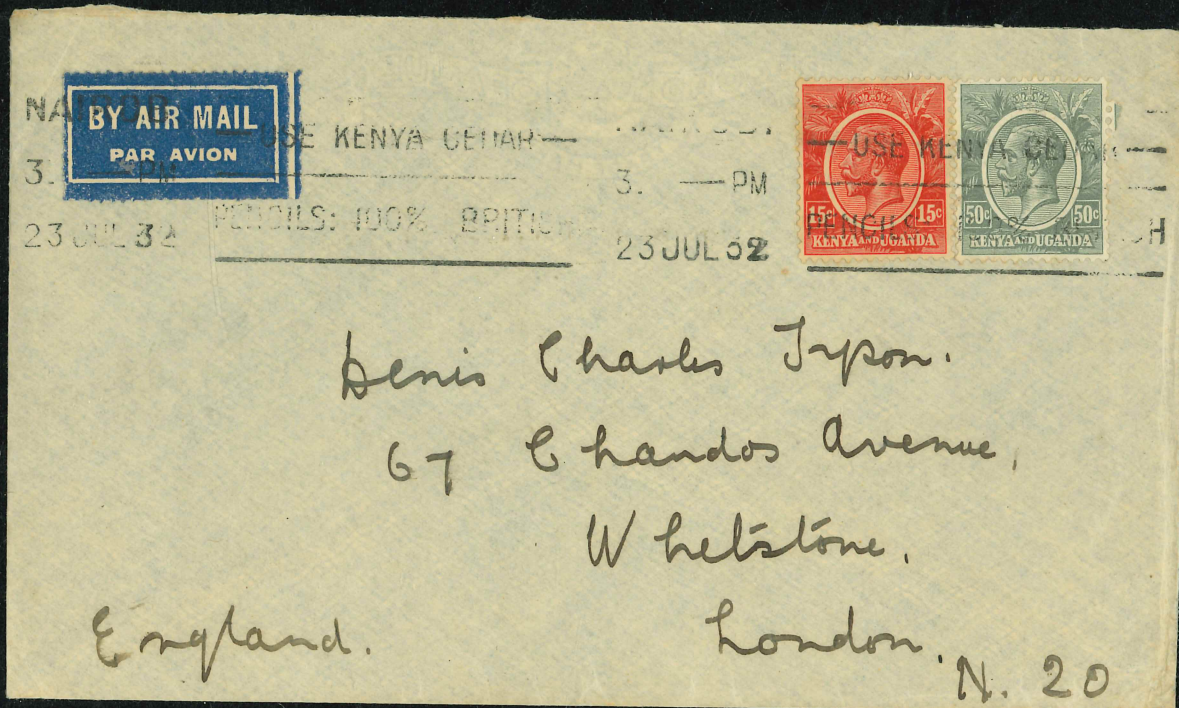 BY AIR MAIL
PAR AVION
NAIROBI
3. — PM
23 JUL 32
— USE KENYA CEDAR —
PENCILS: 100% BRITISH
NAIROBI
3. — PM
23 JUL 32
— USE KENYA CEDAR —
PENCILS 100% BRITISH
15c 15c
KENYA AND UGANDA
50c 50c
KENYA AND UGANDA
Denis Charles Tyson.
67 Chandos Avenue,
Whetstone,
London,
N. 20
England.